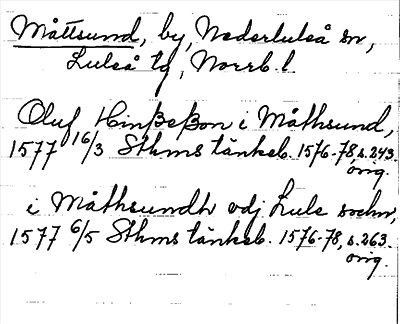 Måttsund, by, Nederluleå sn,
Luleå tg, Norrb. l.
Oluf Hinßeßon i Måthsund,
1577 16/3 Sthms tänkeb. 1576-78, s. 243.
orig.
i Måthsundh vdj Lule sochn,
1577 6/5 Sthms tänkeb. 1576-78, s. 263.
orig.